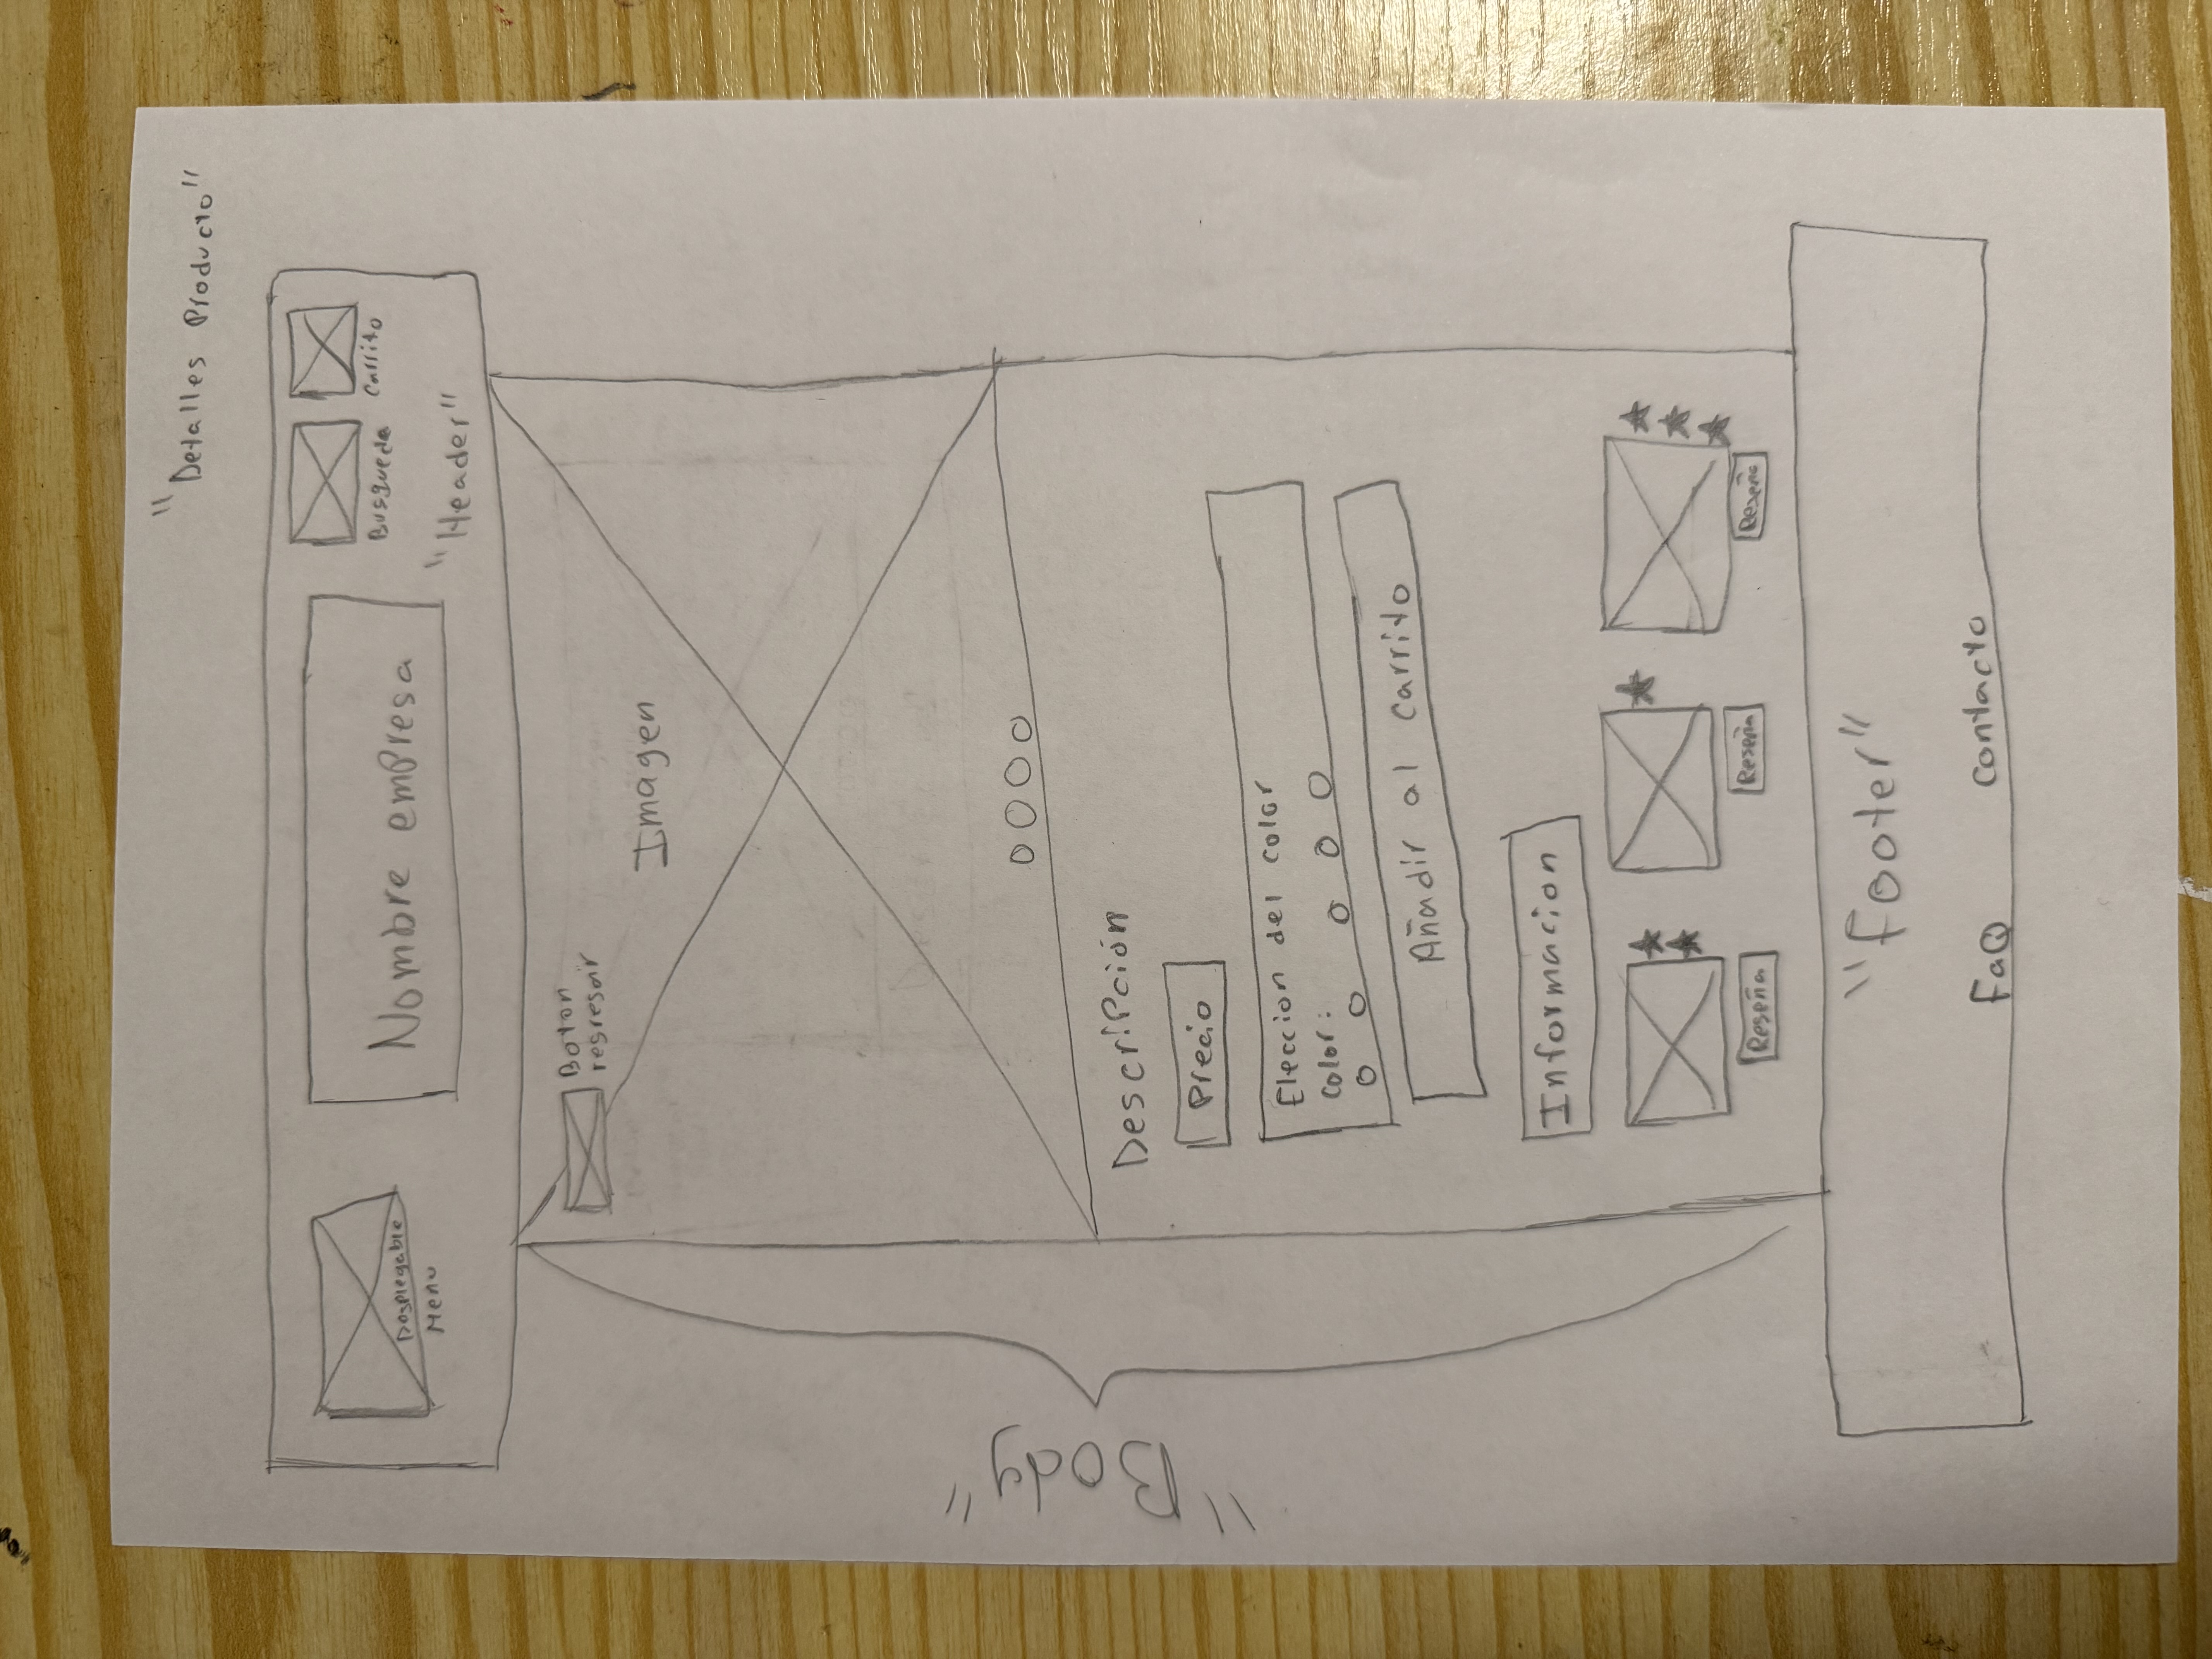 "Detalles Producto"
Desplegable
Menu
Nombre empresa
Busqueda
Carrito
"Header"
Boton
regresar
Imagen
"Body"
Descripción
Precio
Eleccion del color
color:
Añadir al carrito
Informacion
Reseña
Reseña
Reseña
"footer"
FaQ
contacto